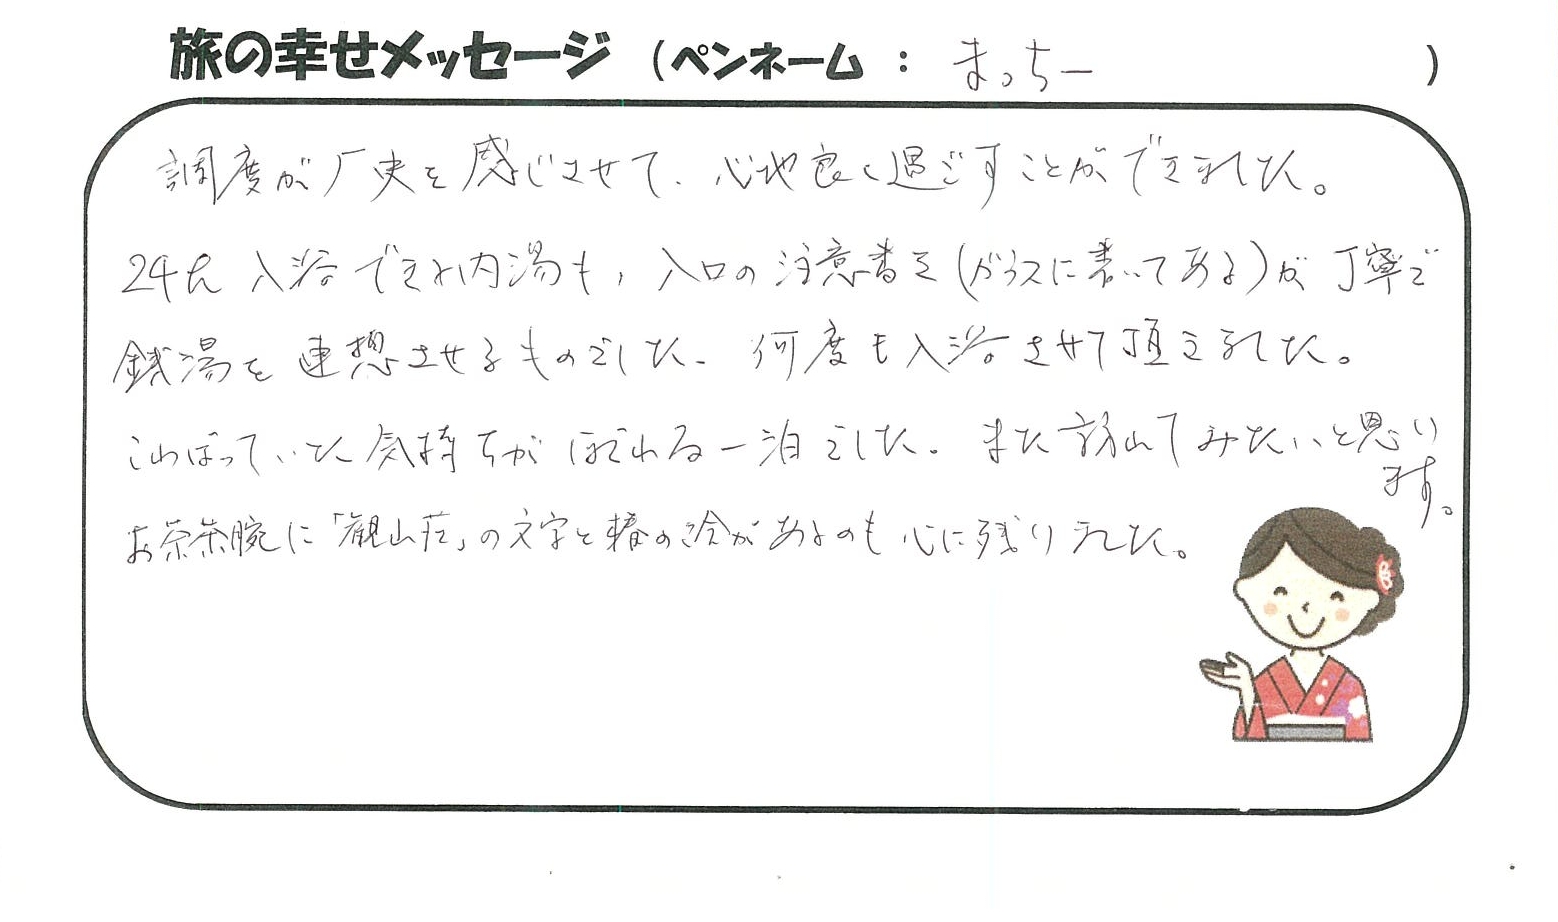 旅の幸せメッセージ (ペンネーム : まっちー )
調度が歴史を感じさせて、心地良く過ごすことができました。
24h入浴できる内湯も、入口の注意書き(ガラスに書いてある)が丁寧で
銭湯を連想させるものでした。何度も入浴させて頂きました。
こわばっていた気持ちがほぐれる一泊でした。また訪れてみたいと思い
ます。
お茶茶腕に「観山荘」の文字と椿の絵があるのも心に残りました。